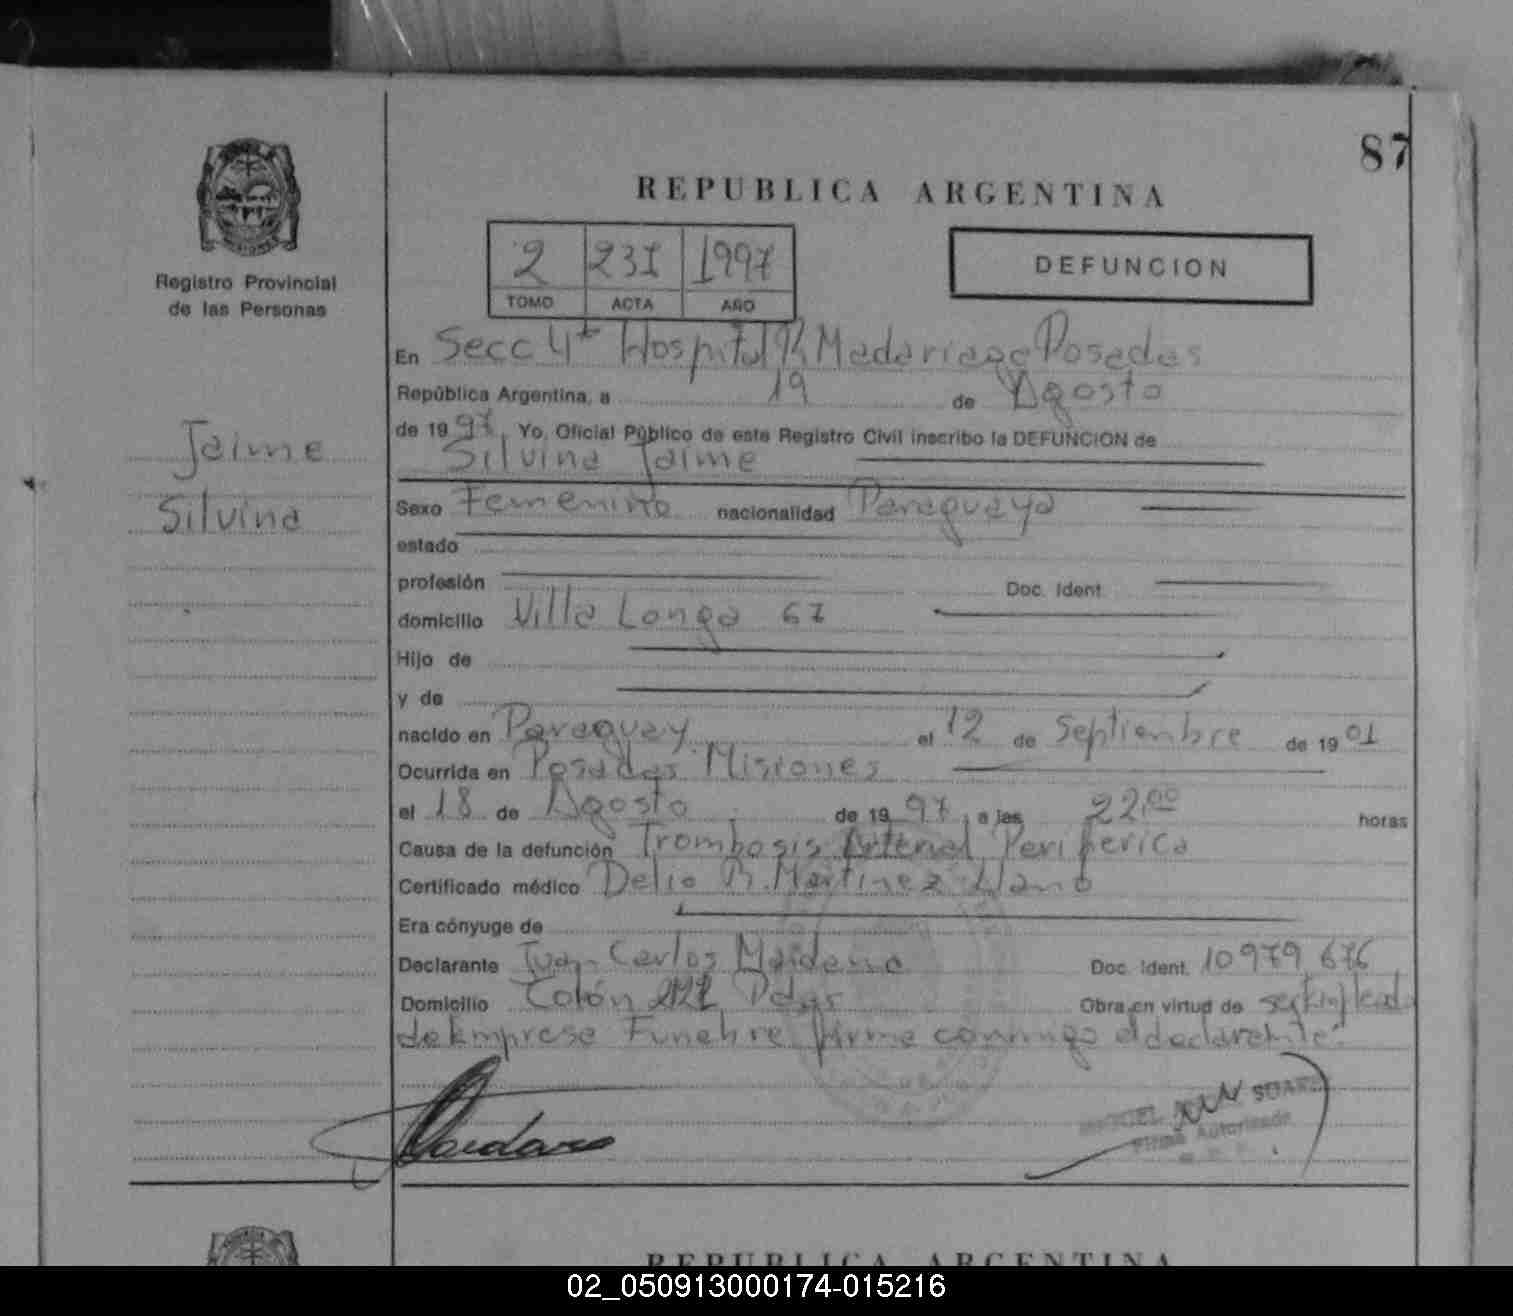 87
REPUBLICA ARGENTINA
Registro Provincial
de las Personas
2 231 1997
TOMO ACTA AÑO
DEFUNCION
En Secc 4ta Hospital R Madariaga Posadas
República Argentina, a 19 de Agosto
de 1997, Yo, Oficial Público de este Registro Civil inscribo la DEFUNCION de
Silvina Jaime
Jaime
Silvina
Sexo Femenino nacionalidad Paraguaya
estado
profesión Doc. Ident.
domicilio Villa Longa 67
Hijo de
y de
nacido en Paraguay. el 12 de Septiembre de 1901
Ocurrida en Posadas Misiones
el 18 de Agosto de 1997, a las 22,00 horas
Causa de la defunción Trombosis Arterial Periferica
Certificado médico Delio R. Martinez Llano
Era cónyuge de
Declarante Juan Carlos Maidana Doc. Ident. 10979676
Domicilio Colón Pdas Obra en virtud de ser Empleado
de Empresa Funebre firma conmigo el declarante.
Maidana
MIGUEL SUAREZ
Firma Autorizada
REPUBLICA ARGENTINA
02_050913000174-015216